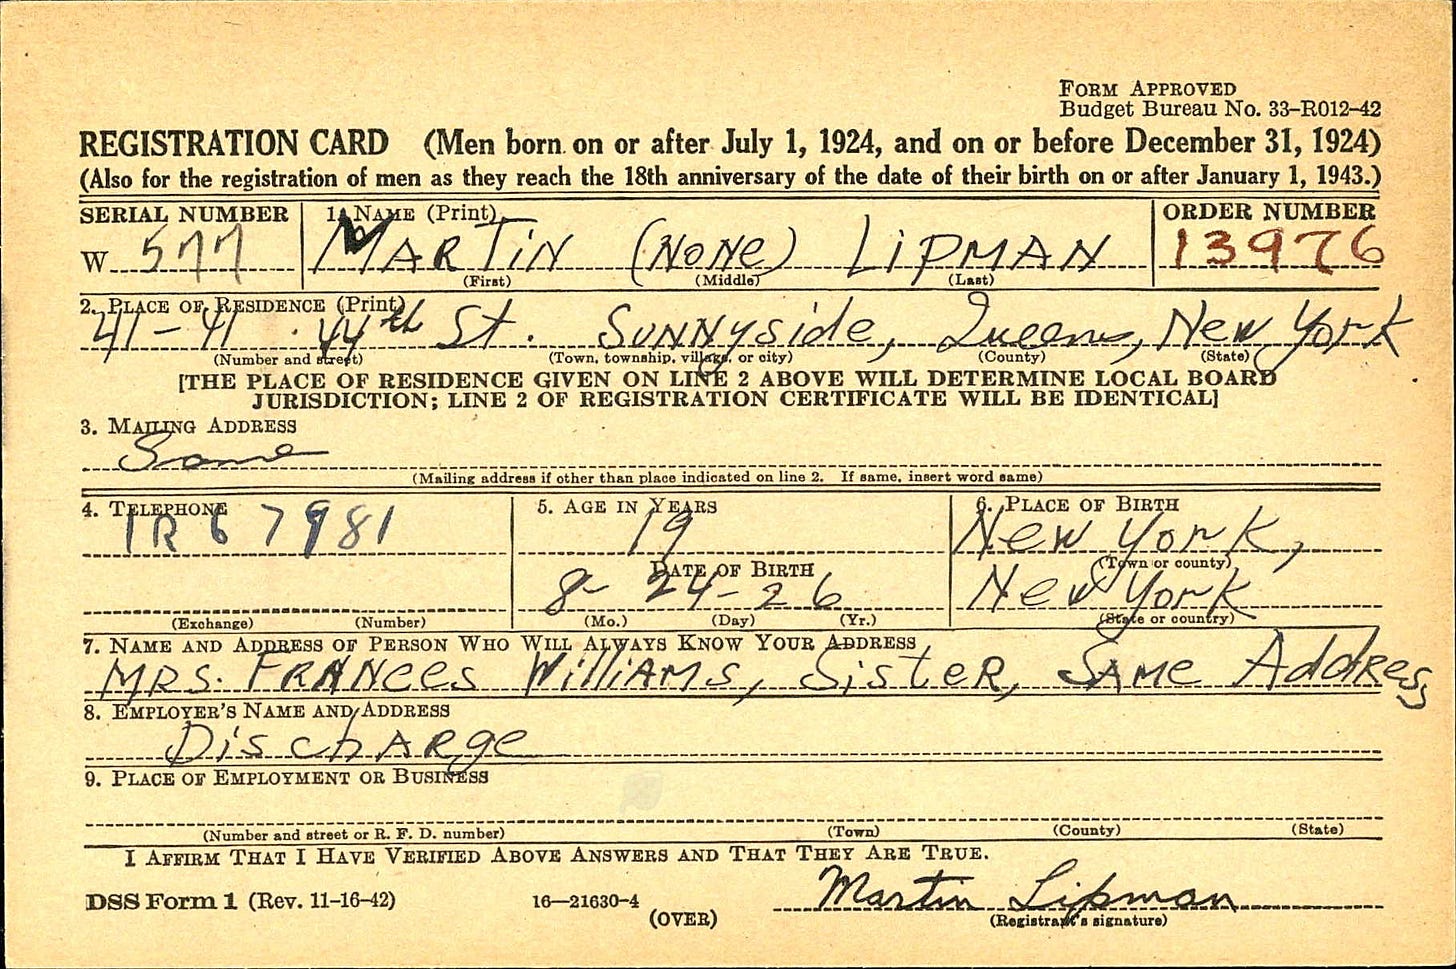 FORM APPROVED
Budget Bureau No. 33-R012-42
REGISTRATION CARD (Men born on or after July 1, 1924, and on or before December 31, 1924)
(Also for the registration of men as they reach the 18th anniversary of the date of their birth on or after January 1, 1943.)
SERIAL NUMBER 1. NAME (Print) ORDER NUMBER
W 577 MARTIN (NONE) LIPMAN 13976
(First) (Middle) (Last)
2. PLACE OF RESIDENCE (Print)
41-41 44th St. SUNNYSide, Queens, New York
(Number and street) (Town, township, village, or city) (County) (State)
[THE PLACE OF RESIDENCE GIVEN ON LINE 2 ABOVE WILL DETERMINE LOCAL BOARD
JURISDICTION; LINE 2 OF REGISTRATION CERTIFICATE WILL BE IDENTICAL]
3. MAILING ADDRESS
Same
(Mailing address if other than place indicated on line 2. If same, insert word same)
4. TELEPHONE 5. AGE IN YEARS 6. PLACE OF BIRTH
IR 6 7981 19 New York,
(Town or county)
DATE OF BIRTH
8-24-26 New York
(Exchange) (Number) (Mo.) (Day) (Yr.) (State or country)
7. NAME AND ADDRESS OF PERSON WHO WILL ALWAYS KNOW YOUR ADDRESS
MRS. FRANCES Williams, Sister, SAME Address
8. EMPLOYER'S NAME AND ADDRESS
DischARge
9. PLACE OF EMPLOYMENT OR BUSINESS
(Number and street or R. F. D. number) (Town) (County) (State)
I AFFIRM THAT I HAVE VERIFIED ABOVE ANSWERS AND THAT THEY ARE TRUE.
DSS Form 1 (Rev. 11-16-42) 16—21630-4 Martin Lipman
(OVER) (Registrant's signature)